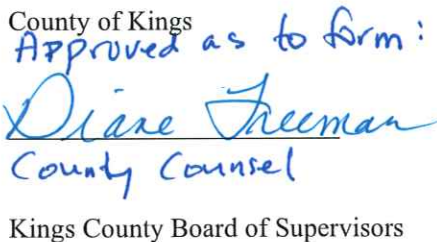 County of Kings
Approved as to form:
Diane Freeman
County Counsel
Kings County Board of Supervisors